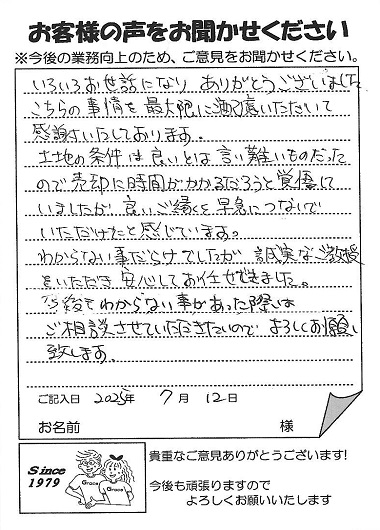 お客様の声をお聞かせください
※今後の業務向上のため、ご意見をお聞かせください。
いろいろお世話になり ありがとうございました
こちらの事情を最大限に いただいて
感謝いたしております。
土地の条件は良いとは言い難いものだった
ので売却に時間がかかるだろうと覚悟して
いましたが、良いご縁を早急につないで
いただけたと感じています。
わからない事だらけでしたが 誠実なご教授
をいただき 安心してお任せできました。
今後もわからない事があった際は
ご相談させていただきたいので よろしくお願い
致します。
ご記入日 2025年 7月 12日
お名前 様
Since
1979
Grace Grace
貴重なご意見ありがとうございます!
今後も頑張りますので
よろしくお願いいたします